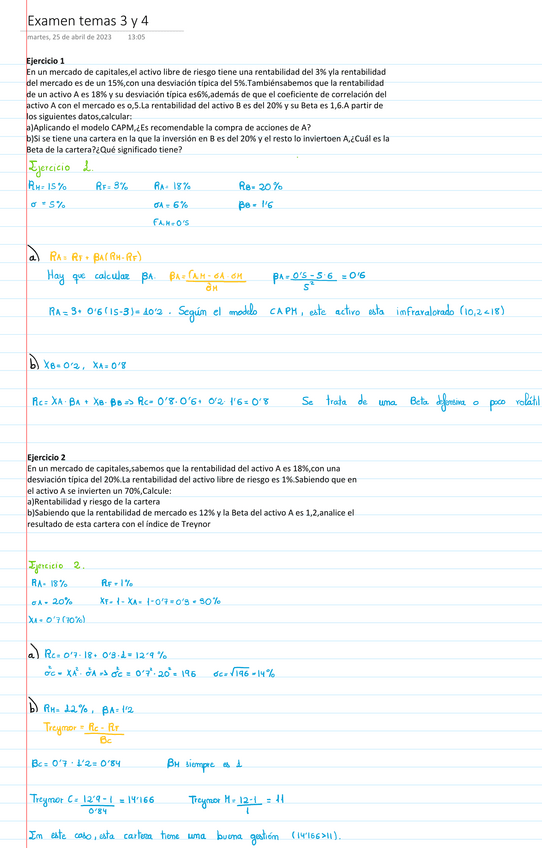 Examen temas 3 y 4
martes, 25 de abril de 2023 13:05
Ejercicio 1
En un mercado de capitales,el activo libre de riesgo tiene una rentabilidad del 3% yla rentabilidad
del mercado es de un 15%,con una desviación típica del 5%.Tambiénsabemos que la rentabilidad
de un activo A es 18% y su desviación típica es6%,además de que el coeficiente de correlación del
activo A con el mercado es o,5.La rentabilidad del activo B es del 20% y su Beta es 1,6.A partir de
los siguientes datos,calcular:
a)Aplicando el modelo CAPM,¿Es recomendable la compra de acciones de A?
b)Si se tiene una cartera en la que la inversión en B es del 20% y el resto lo inviertoen A,¿Cuál es la
Beta de la cartera?¿Qué significado tiene?
Ejercicio 1.
RM= 15% RF= 3% RA= 18% RB= 20%
σ = 5% σA= 6% βB= 1'6
rA,M=0'5
a) RA= RF + βA(RM-RF)
Hay que calcular βA. βA= rA,M - σA · σM / σM βA= 0'5 - 5 · 6 / 5² = 0'6
RA= 3+ 0'6(15-3)=10'2 . Según el modelo CAPM, este activo esta infravalorado (10,2<18)
b) XB=0'2, XA=0'8
RC= XA · βA + XB · βB => RC= 0'8 · 0'6+ 0'2 · 1'6 = 0'8 Se trata de una Beta defensiva o poco volátil
Ejercicio 2
En un mercado de capitales,sabemos que la rentabilidad del activo A es 18%,con una
desviación típica del 20%.La rentabilidad del activo libre de riesgo es 1%.Sabiendo que en
el activo A se invierten un 70%,Calcule:
a)Rentabilidad y riesgo de la cartera
b)Sabiendo que la rentabilidad de mercado es 12% y la Beta del activo A es 1,2,analice el
resultado de esta cartera con el índice de Treynor
Ejercicio 2.
RA= 18% RF=1%
σA= 20% XF= 1- XA= 1-0'7=0'3 = 30%
XA= 0'7(70%)
a) RC=0'7 · 18+ 0'3 · 1= 12'9 %
σ²C = XA² · σ²A => σ²C = 0'7² · 20² = 196 σC=√196 =14%
b) RM= 12%, βA=1'2
Treynor = RC - RF / BC
BC=0'7 · 1'2=0'84 βM siempre es 1
Treynor C = 12'9 - 1 / 0'84 = 14'166 Treynor M = 12-1 / 1 = 11
En este caso, esta cartera tiene una buena gestión (14'166>11).